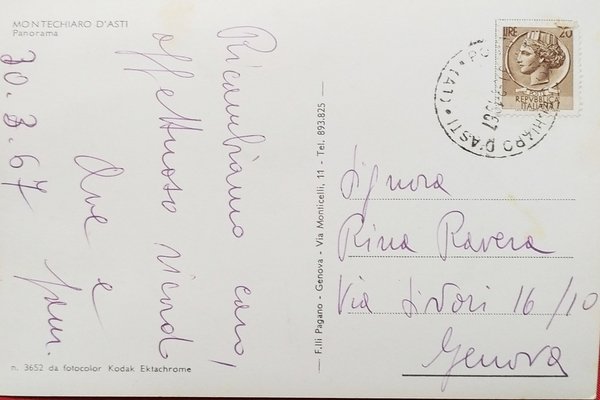 MONTECHIARO D'ASTI
Panorama
Ricambiamo caro,
affettuoso ricordo
Ave e
fam.
30.3.67
n. 3652 da fotocolor Kodak Ektachrome
F.lli Pagano - Genova - Via Monticelli, 11 - Tel. 893.825
LIRE 20
REPVBBLICA
ITALIANA
CHIARO D'ASTI * (AT) *
Signora
Rina Ravera
Via 16/10
Genova